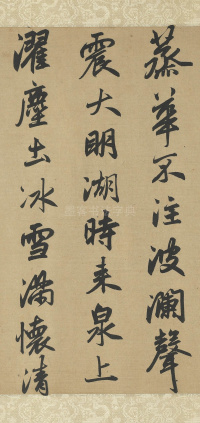 蒸華不注波瀾聲
震大明湖時来泉上
濯塵土冰雪滿懷清